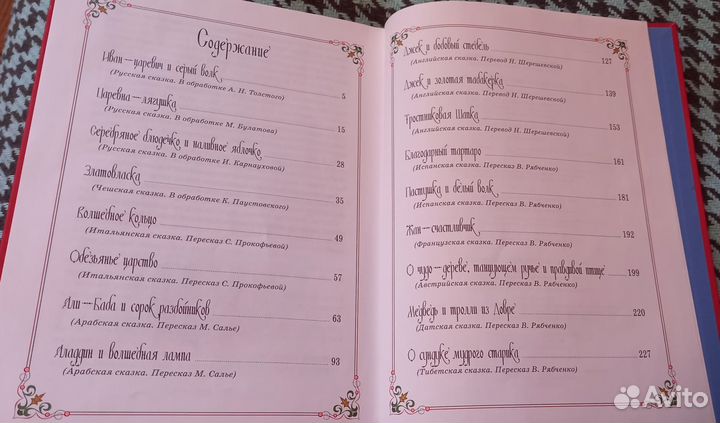 Содержание
Иван-царевич и серый волк 5
(Русская сказка. В обработке А. Н. Толстого)
Царевна-лягушка 15
(Русская сказка. В обработке М. Булатова)
Серебряное блюдечко и наливное яблочко 28
(Русская сказка. В обработке И. Карнауховой)
Златовласка 35
(Чешская сказка. В обработке К. Паустовского)
Волшебное кольцо 49
(Итальянская сказка. Пересказ С. Прокофьевой)
Обезьянье царство 57
(Итальянская сказка. Пересказ С. Прокофьевой)
Али-Баба и сорок разбойников 63
(Арабская сказка. Пересказ М. Салье)
Аладдин и волшебная лампа 93
(Арабская сказка. Пересказ М. Салье)
Джек и бобовый стебель 127
(Английская сказка. Перевод Н. Шерешевской)
Джек и золотая табакерка 139
(Английская сказка. Перевод Н. Шерешевской)
Тростниковая Шапка 153
(Английская сказка. Перевод Н. Шерешевской)
Благодарный тартаро 161
(Испанская сказка. Пересказ В. Рябченко)
Пастушка и белый волк 181
(Испанская сказка. Пересказ В. Рябченко)
Жан-счастливчик 192
(Французская сказка. Пересказ В. Рябченко)
О чудо-дереве, танцующем ручье и правдивой птице 199
(Австрийская сказка. Пересказ В. Рябченко)
Медведь и тролли из Довре 220
(Датская сказка. Пересказ В. Рябченко)
О сундуке мудрого старика 227
(Тибетская сказка. Пересказ В. Рябченко)
Avito